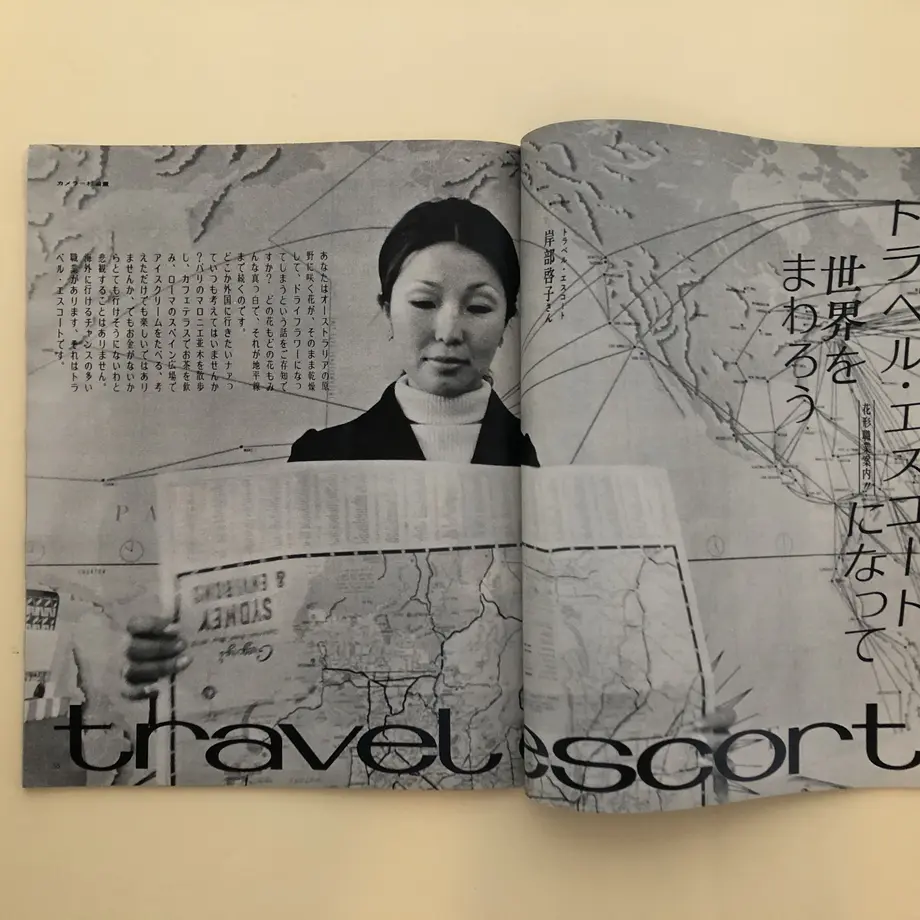 トラベル・エスコート
になって
世界を
まわろう
花形職業案内!!
トラベル・エスコート
岸部啓子さん
あなたはオーストラリアの原
野に咲く花が、そのまま乾燥
して、ドライフラワーになっ
てしまうという話をご存知で
すか? どの花もどの花もみ
んな真っ白で、それが地平線
まで続くのです。
どこか外国に行きたいナァっ
ていつも考えてはいませんか
?パリのマロニエ並木を散歩
し、カフェテラスでお茶を飲
み、ローマのスペイン広場で
アイスクリームをたべる。考
えただけでも楽しいではあり
ませんか。でもお金がないか
らとても行けそうにないわと
悲観することはありません。
海外に行けるチャンスの多い
職業があります。それはトラ
ベル・エスコートです。
カメラ
PA
EQUATOR
SYDNEY
& ENVIRONS
Gregory's
travel escort